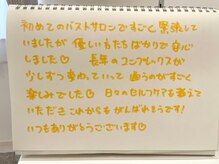 初めてのバストサロンですごく緊張して
いましたが 優しい方たちばかりで安心
しました♡ 長年のコンプレックスが
少しずつ変わっていって 通うのがすごく
楽しみでした♡ 日々のセルフケアを教えて
いただき これからもがんばれそうです!
いつもありがとうございます♡